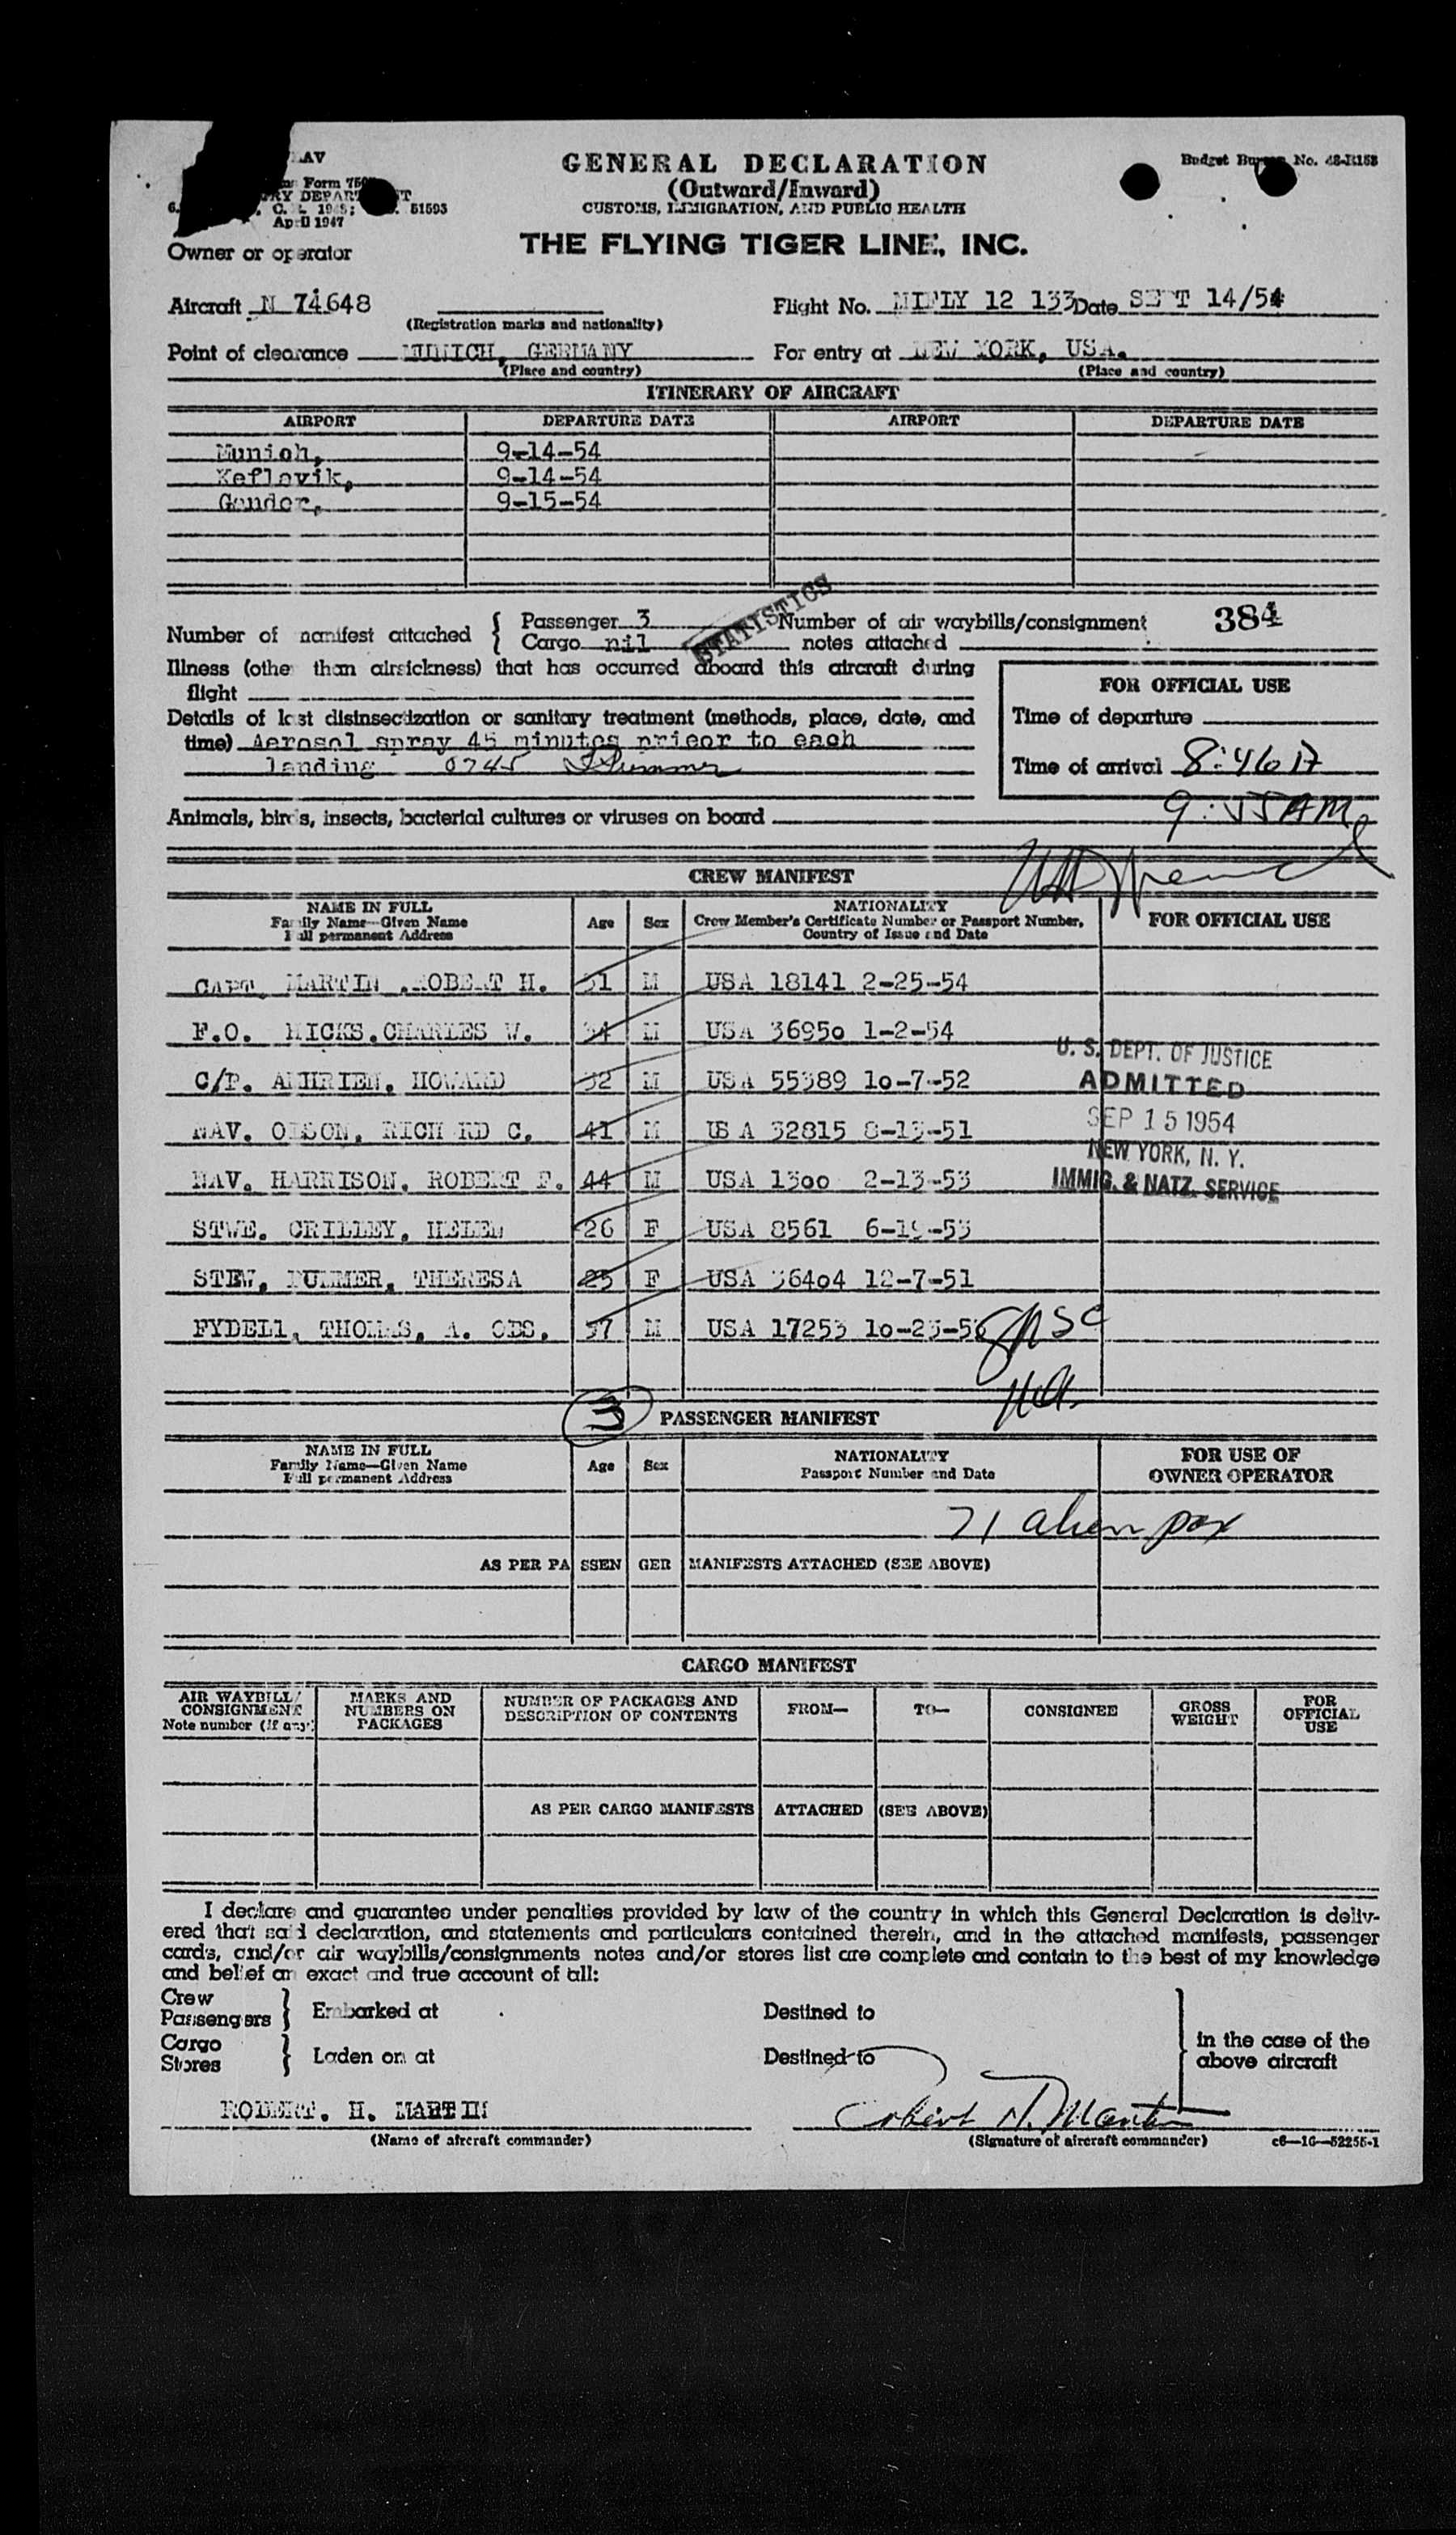 GENERAL DECLARATION
(Outward/Inward)
CUSTOMS, IMMIGRATION, AND PUBLIC HEALTH
Budget Bureau No. 48-R158
Form 7507
51593
April 1947
Owner or operator
THE FLYING TIGER LINE, INC.
Aircraft N 74648
Flight No. MIFLY 12 133 Date SEPT 14/54
(Registration marks and nationality)
Point of clearance MUNICH, GERMANY
For entry at NEW YORK, USA.
(Place and country) (Place and country)
ITINERARY OF AIRCRAFT
AIRPORT DEPARTURE DATE AIRPORT DEPARTURE DATE
Munich, 9-14-54
Keflavik, 9-14-54
Gander, 9-15-54
STATISTICS
Number of manifest attached { Passenger 3 Number of air waybills/consignment 384
Cargo nil notes attached
Illness (other than airsickness) that has occurred aboard this aircraft during
flight
FOR OFFICIAL USE
Details of last disinsectization or sanitary treatment (methods, place, date, and
Time of departure
time) Aerosol spray 45 minutes prieor to each
landing 0745
Time of arrival 8:46 A
9:55 AM
Animals, birds, insects, bacterial cultures or viruses on board
CREW MANIFEST
NAME IN FULL
Family Name—Given Name
Full permanent Address
Age Sex
NATIONALITY
Crew Member's Certificate Number or Passport Number,
Country of Issue and Date
FOR OFFICIAL USE
CAPT. MARTIN .ROBERT H. 31 M USA 18141 2-25-54
F.O. HICKS.CHARLES W. 34 M USA 36950 1-2-54
C/P. HOWARD 32 M USA 55389 10-7-52
NAV. OLSON, RICHARD C. 41 M USA 32815 8-13-51
NAV. HARRISON, ROBERT F. 44 M USA 1300 2-13-53
STWE. CRILLEY, HELEN 26 F USA 8561 6-19-53
STEW. THERESA 25 F USA 36404 12-7-51
FYDELL, THOMAS, A. OBS. 37 M USA 17253 10-23-53
U. S. DEPT. OF JUSTICE
ADMITTED
SEP 15 1954
NEW YORK, N. Y.
IMMIG. & NATZ. SERVICE
3
PASSENGER MANIFEST
NAME IN FULL
Family Name—Given Name
Full permanent Address
Age Sex
NATIONALITY
Passport Number and Date
FOR USE OF
OWNER OPERATOR
71 alien pax
AS PER PASSENGER MANIFESTS ATTACHED (SEE ABOVE)
CARGO MANIFEST
AIR WAYBILL/
CONSIGNMENT
Note number (if any)
MARKS AND
NUMBERS ON
PACKAGES
NUMBER OF PACKAGES AND
DESCRIPTION OF CONTENTS
FROM— TO— CONSIGNEE
GROSS
WEIGHT
FOR
OFFICIAL
USE
AS PER CARGO MANIFESTS ATTACHED (SEE ABOVE)
I declare and guarantee under penalties provided by law of the country in which this General Declaration is deliv-
ered that said declaration, and statements and particulars contained therein, and in the attached manifests, passenger
cards, and/or air waybills/consignments notes and/or stores list are complete and contain to the best of my knowledge
and belief an exact and true account of all:
Crew
Passengers } Embarked at Destined to
Cargo
Stores } Laden on at Destined to
in the case of the
above aircraft
ROBERT. H. MARTIN Robert H. Martin
(Name of aircraft commander) (Signature of aircraft commander) c6—16—52255-1